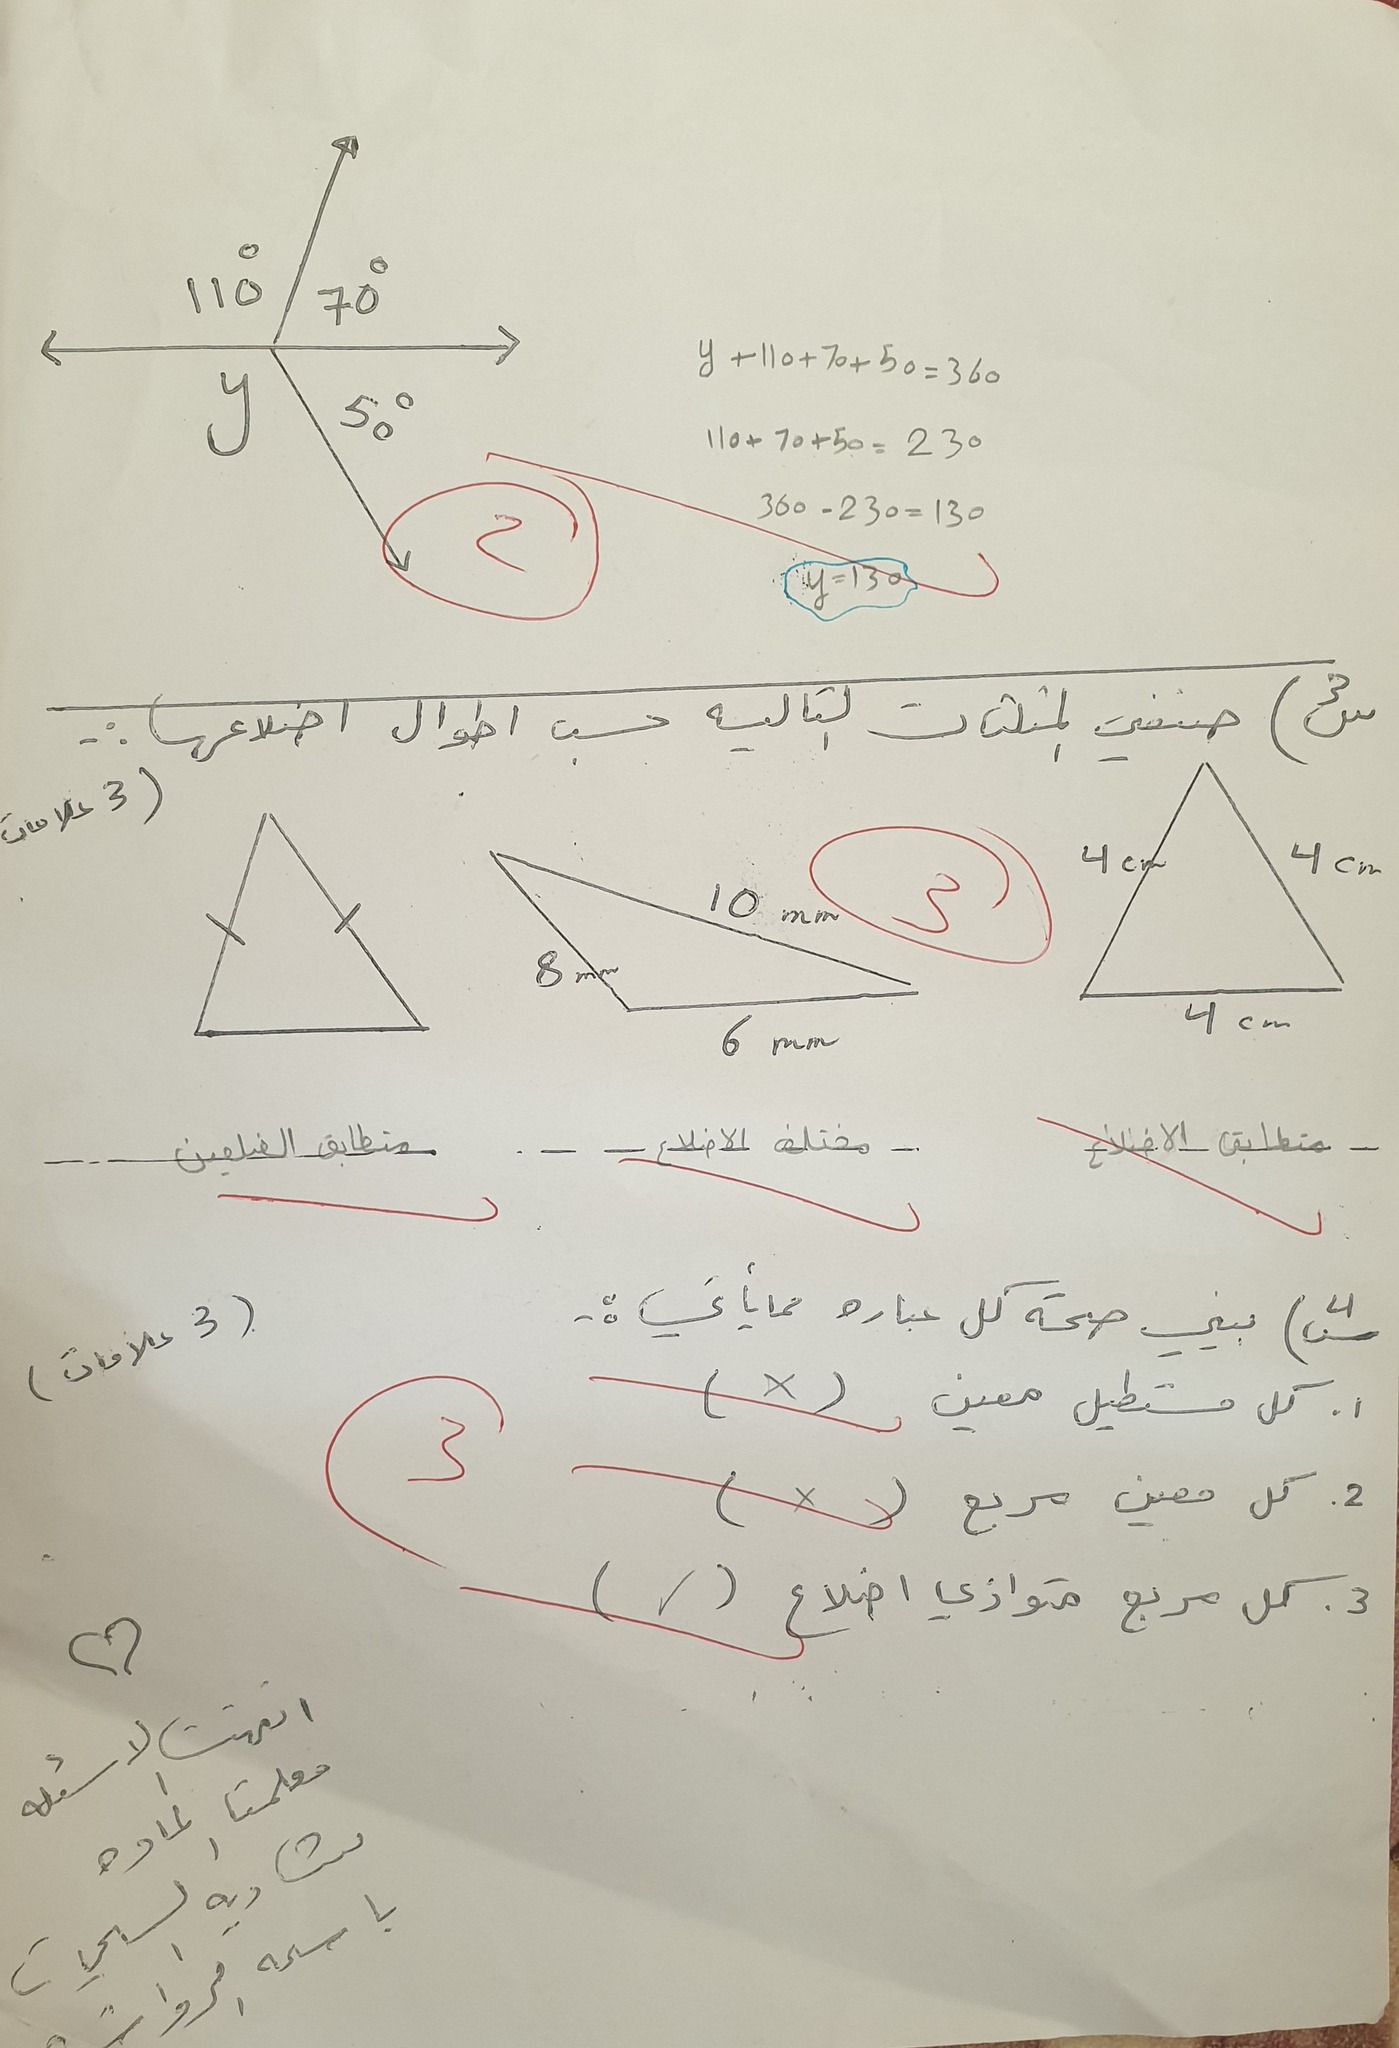 110°
70°
y
50°
y + 110 + 70 + 50 = 360
110 + 70 + 50 = 230
360 - 230 = 130
y = 130
2
س3) صنفي المثلثات التالية حسب اطوال اضلاعها :-
(3 علامات)
4 cm
4 cm
4 cm
3
10 mm
8 mm
6 mm
متطابق الاضلاع
مختلف الاضلاع
متطابق الضلعين
س4) بيني صحة كل عباره مما يأتي :-
(3 علامات)
1. كل مستطيل معين ( X )
2. كل معين مربع ( X )
3. كل مربع متوازي اضلاع ( ✓ )
3
انتهت الاسئله
معلمتا الماده